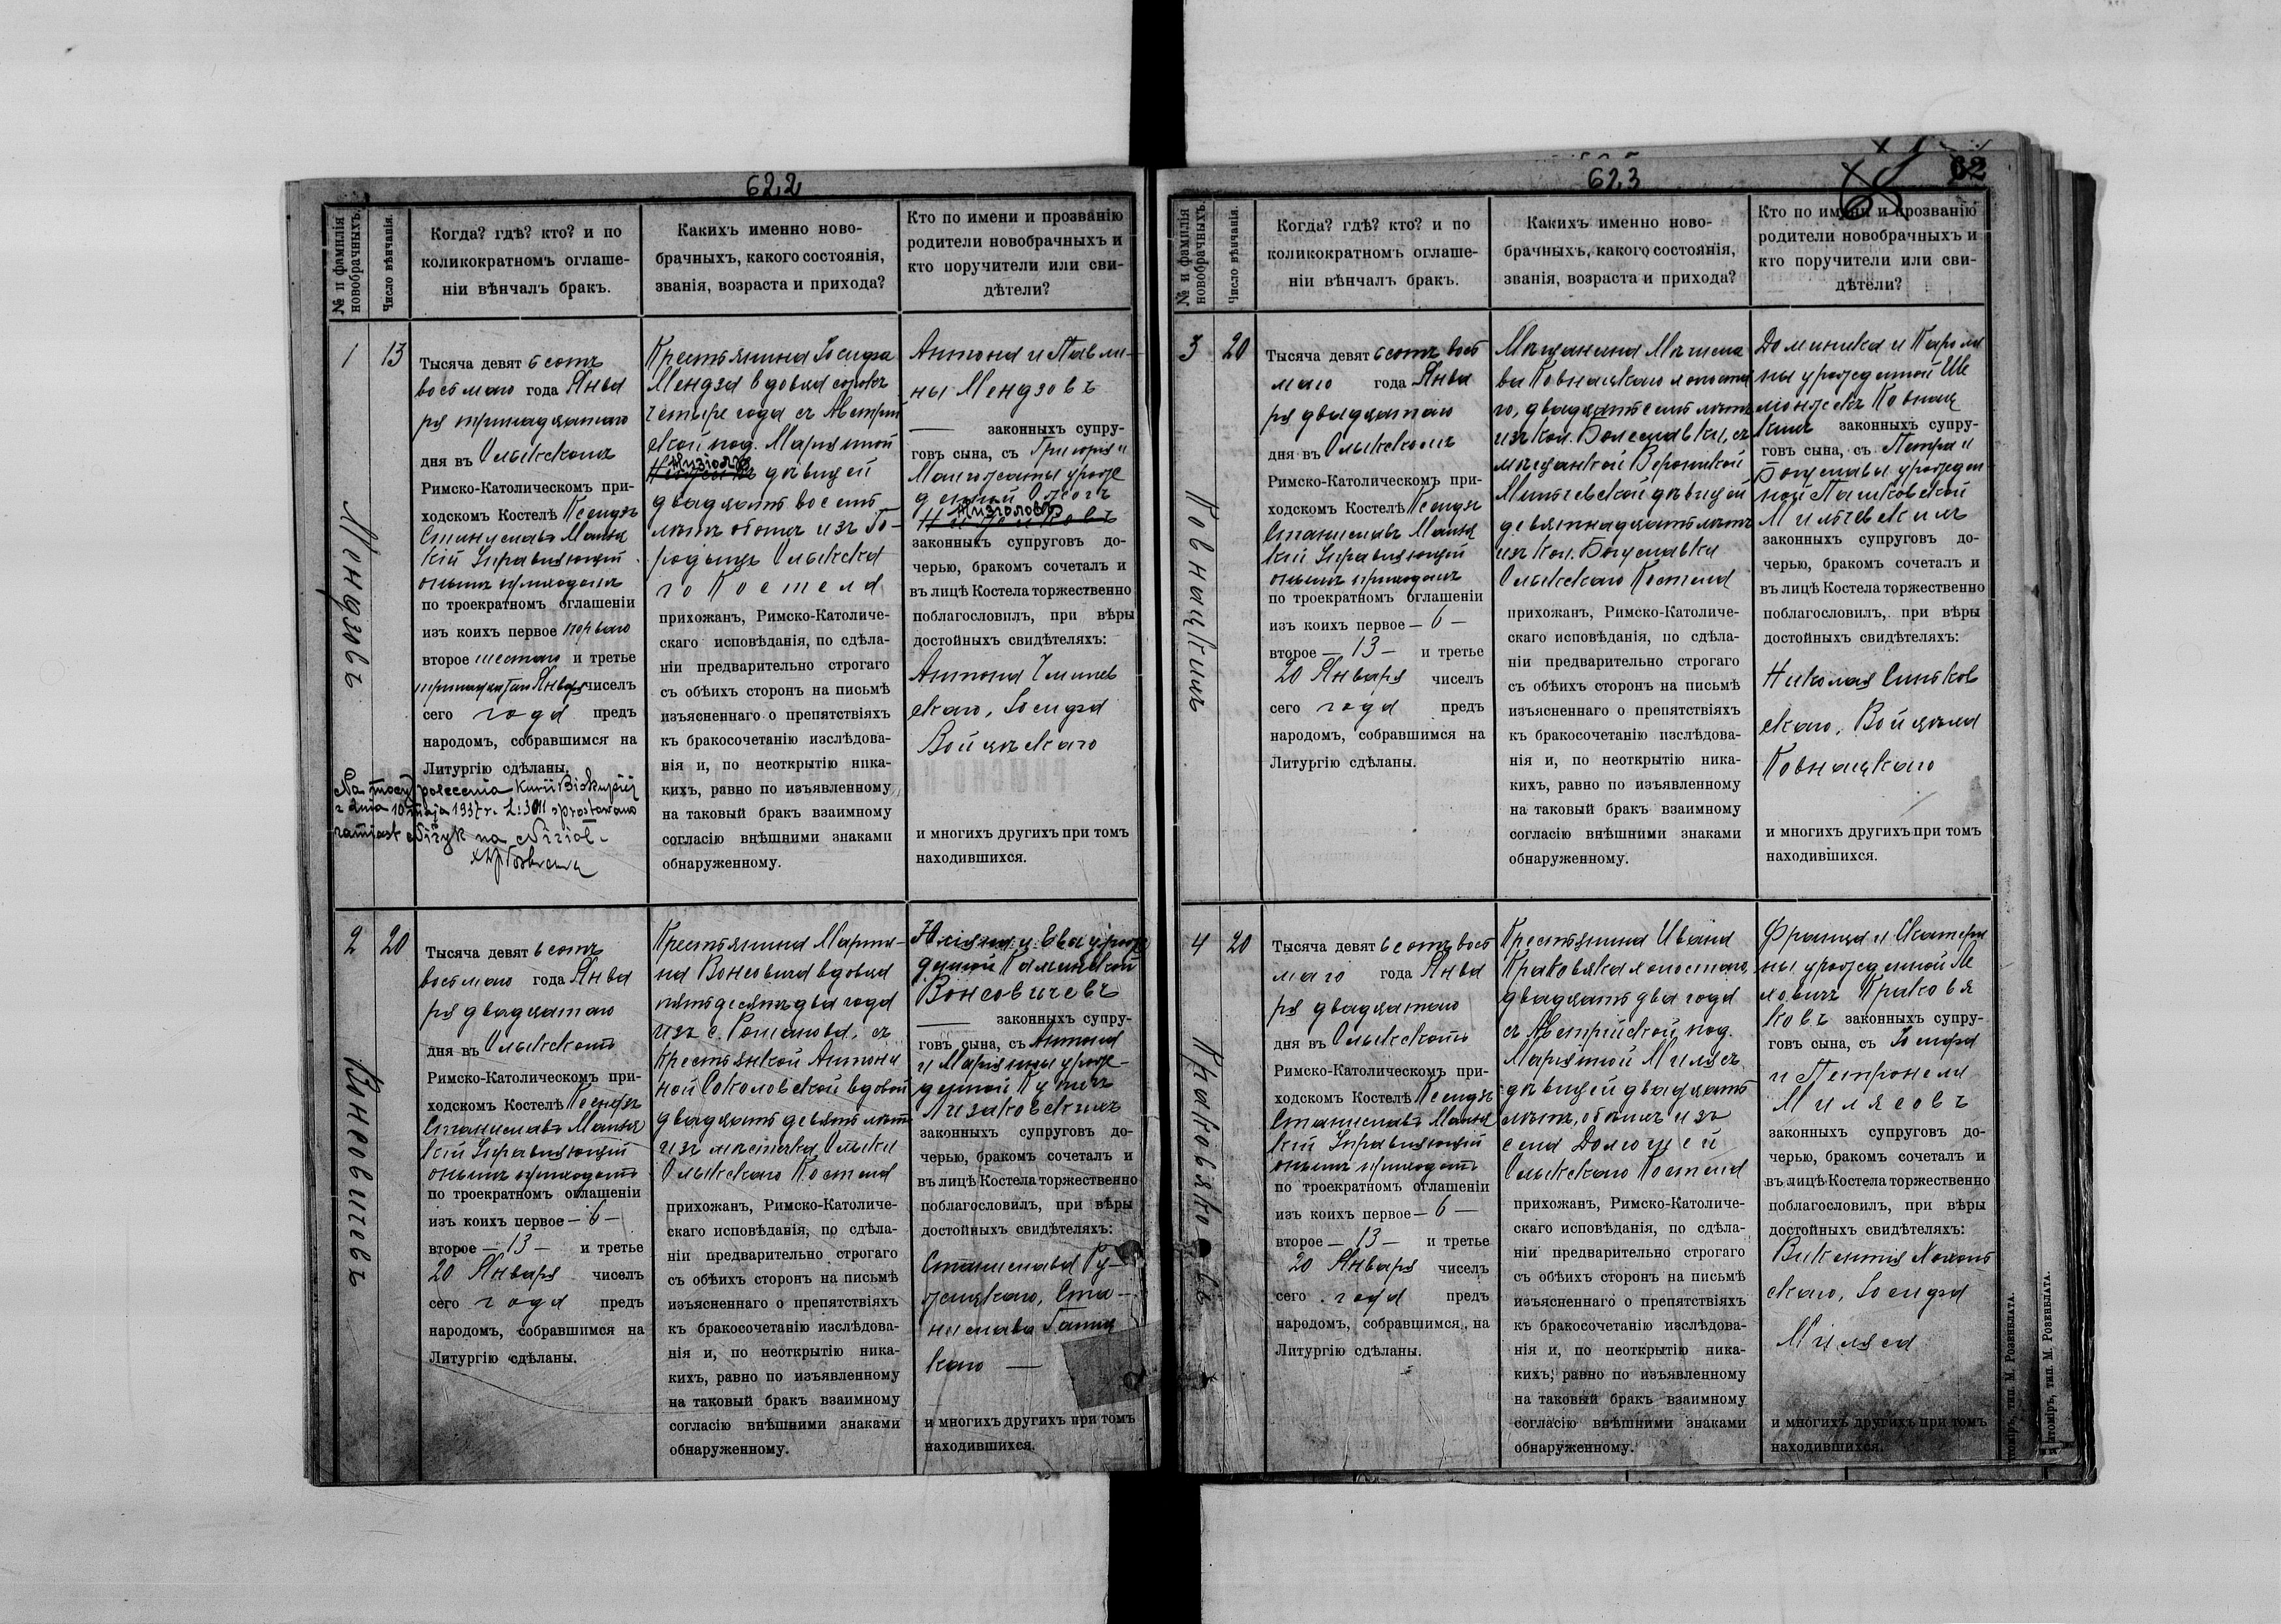 622
№ и фамилія новобрачныхъ.
Число вѣнчанія.
Когда? гдѣ? кто? и по
коликократномъ оглаше-
ніи вѣнчалъ бракъ.
Какихъ именно ново-
брачныхъ, какого состоянія,
званія, возраста и прихода?
Кто по имени и прозванію
родители новобрачныхъ и
кто поручители или сви-
дѣтели?
1
13
Мендзовъ
Тысяча девятьсотъ
восьмаго года Янва
ря тринадцатаго
дня въ Олыкскомъ
Римско-Католическомъ при-
ходскомъ Костелѣ Ксендзъ
Станиславъ
кій Управляющій
онымъ приходомъ
по троекратномъ оглашеніи
изъ коихъ первое перваго
второе шестаго и третье
тринадцатаго Января чиселъ
сего года предъ
народомъ, собравшимся на
Литургію сдѣланы.
Na mocy polecenia Kurii Biskupiej
z dnia 10 maja 1937 r. L: 3011 sprostowano
zamiast Niżyk na Niziol -
Крестьянина Іосифа
Мендза вдовца сорокъ
четыре года съ Австрій
ской под. Маріянной
Низіолъ дѣвицей
двадцать восемь
лѣтъ обоихъ изъ Го-
родищъ Олыкска
го Костела
прихожанъ, Римско-Католиче-
скаго исповѣданія, по сдѣла-
ніи предварительно строгаго
съ обѣихъ сторонъ на письмѣ
изъясненнаго о препятствіяхъ
къ бракосочетанію изслѣдова-
нія и, по неоткрытію ника-
кихъ, равно по изъявленному
на таковый бракъ взаимному
согласію внѣшними знаками
обнаруженному.
Антона и Павли-
ны Мендзовъ
законныхъ супру-
говъ сына, съ Григорія и
Малгожаты урож
денной Ожогъ
Низіоловъ
законныхъ супруговъ до-
черью, бракомъ сочеталъ и
въ лицѣ Костела торжественно
поблагословилъ, при вѣры
достойныхъ свидѣтеляхъ:
Антона
скаго, Іосифа
Войцѣскаго
и многихъ другихъ при томъ
находившихся.
2
20
Вонсовичевъ
Тысяча девятьсотъ
восьмаго года Янва
ря двадцатаго
дня въ Олыкскомъ
Римско-Католическомъ при-
ходскомъ Костелѣ Ксендзъ
Станиславъ
кій Управляющій
онымъ приходомъ
по троекратномъ оглашеніи
изъ коихъ первое — 6 —
второе — 13 — и третье
20 Января чиселъ
сего года предъ
народомъ, собравшимся на
Литургію сдѣланы.
Крестьянина Марти-
на Вонсовича вдовца
пятьдесятъ два года
изъ с. Романова, съ
Крестьянкой Антони
ной Соколовской вдовой
двадцать девять лѣтъ
изъ мѣстечка Олыки
Олыкскаго Костела
прихожанъ, Римско-Католиче-
скаго исповѣданія, по сдѣла-
ніи предварительно строгаго
съ обѣихъ сторонъ на письмѣ
изъясненнаго о препятствіяхъ
къ бракосочетанію изслѣдова-
нія и, по неоткрытію ника-
кихъ, равно по изъявленному
на таковый бракъ взаимному
согласію внѣшними знаками
обнаруженному.
и Ева урож
денной Каминской
Вонсовичевъ
законныхъ супру-
говъ сына, съ Антона
и Маріянны урож-
денной
Лизаковскихъ
законныхъ супруговъ до-
черью, бракомъ сочеталъ и
въ лицѣ Костела торжественно
поблагословилъ, при вѣры
достойныхъ свидѣтеляхъ:
Станислава Ру-
жицкаго, Ста-
нислава
каго —
и многихъ другихъ при томъ
находившихся.
623
62
№ и фамилія новобрачныхъ.
Число вѣнчанія.
Когда? гдѣ? кто? и по
коликократномъ оглаше-
ніи вѣнчалъ бракъ.
Какихъ именно ново-
брачныхъ, какого состоянія,
званія, возраста и прихода?
Кто по имени и прозванію
родители новобрачныхъ и
кто поручители или сви-
дѣтели?
3
20
Ковнацкихъ
Тысяча девятьсотъ вось
маго года Янва
ря двадцатаго
дня въ Олыкскомъ
Римско-Католическомъ при-
ходскомъ Костелѣ Ксендзъ
Станиславъ
кій Управляющій
онымъ приходомъ
по троекратномъ оглашеніи
изъ коихъ первое — 6 —
второе — 13 — и третье
20 Января чиселъ
сего года предъ
народомъ, собравшимся на
Литургію сдѣланы.
Мѣщанина Мѣчисла
ва Ковнацкаго холоста
го, двадцать семь лѣтъ
изъ кол. Болеславки, съ
мѣщанкой Вероникой
Мильчевской дѣвицей
девятнадцать лѣтъ
изъ кол. Богуславки
Олыкскаго Костела
прихожанъ, Римско-Католиче-
скаго исповѣданія, по сдѣла-
ніи предварительно строгаго
съ обѣихъ сторонъ на письмѣ
изъясненнаго о препятствіяхъ
къ бракосочетанію изслѣдова-
нія и, по неоткрытію ника-
кихъ, равно по изъявленному
на таковый бракъ взаимному
согласію внѣшними знаками
обнаруженному.
Доминика и Кароли
ны урожденной Ше
Ковнац
кихъ законныхъ супру-
говъ сына, съ Петра и
Богуславы урожден
ной Пашковской
Мильчевскихъ
законныхъ супруговъ до-
черью, бракомъ сочеталъ и
въ лицѣ Костела торжественно
поблагословилъ, при вѣры
достойныхъ свидѣтеляхъ:
Николая Синьков
скаго, Войцѣха
Ковнацкаго
и многихъ другихъ при томъ
находившихся.
4
20
Краковяковъ
Тысяча девятьсотъ вось
маго года Янва
ря двадцатаго
дня въ Олыкскомъ
Римско-Католическомъ при-
ходскомъ Костелѣ Ксендзъ
Станиславъ
кій Управляющій
онымъ приходомъ
по троекратномъ оглашеніи
изъ коихъ первое — 6 —
второе — 13 — и третье
20 Января чиселъ
сего года предъ
народомъ, собравшимся на
Литургію сдѣланы.
Крестьянина Ивана
Краковяка холостаго,
двадцать два года
съ Австрійской под.
Маріянной Милясъ
дѣвицей двадцать
лѣтъ, обоихъ изъ
села Долгошей
Олыкскаго Костела
прихожанъ, Римско-Католиче-
скаго исповѣданія, по сдѣла-
ніи предварительно строгаго
съ обѣихъ сторонъ на письмѣ
изъясненнаго о препятствіяхъ
къ бракосочетанію изслѣдова-
нія и, по неоткрытію ника-
кихъ, равно по изъявленному
на таковый бракъ взаимному
согласію внѣшними знаками
обнаруженному.
Франца и Екатери
ны урожденной
Краковя
ковъ законныхъ супру-
говъ сына, съ Іосифа
и Петронели
Милясовъ
законныхъ супруговъ до-
черью, бракомъ сочеталъ и
въ лицѣ Костела торжественно
поблагословилъ, при вѣры
достойныхъ свидѣтеляхъ:
Викентія
скаго, Іосифа
Миляса
и многихъ другихъ при томъ
находившихся.
тип. М. Розенблата.
тип. М. Розенблата.